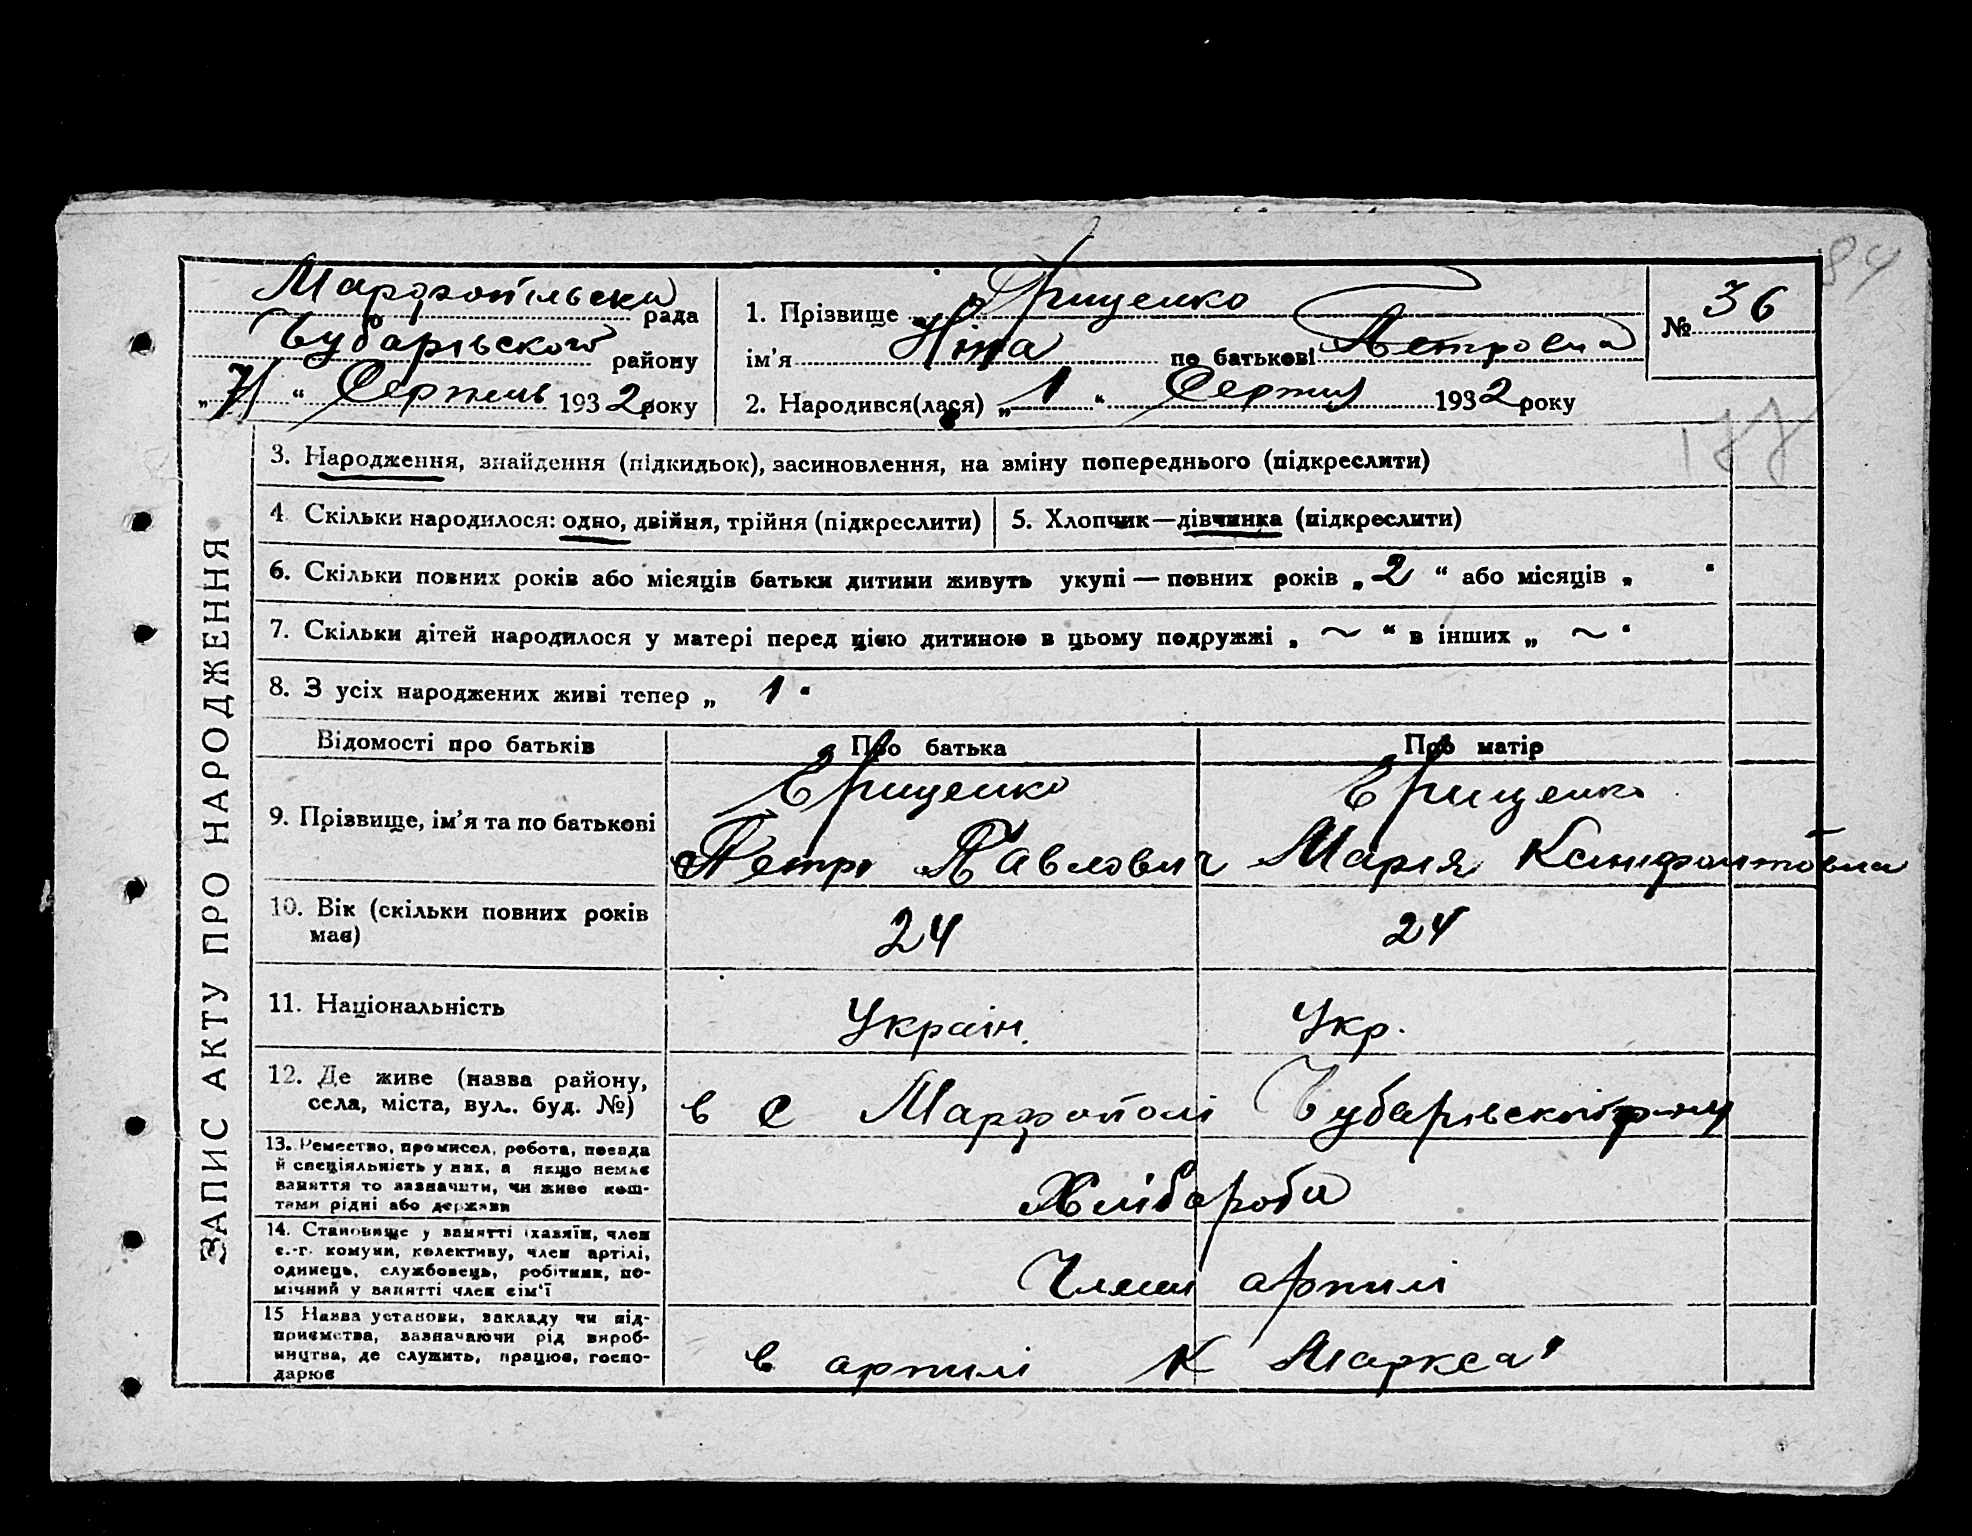 84
Марфопільська рада
Чубарівського району
„7“ Серпень 1932 року
1. Прізвище Грищенко
ім'я Ніна по батькові Петровна
2. Народився(лася) „1“ Серпня 1932 року
№ 36
177
ЗАПИС АКТУ ПРО НАРОДЖЕННЯ
3. Народження, знайдення (підкидьок), засиновлення, на зміну попереднього (підкреслити)
4. Скільки народилося: одно, двійня, трійня (підкреслити)
5. Хлопчик—дівчинка (підкреслити)
6. Скільки повних років або місяців батьки дитини живуть укупі — повних років „2“ або місяців „ “
7. Скільки дітей народилося у матері перед цією дитиною в цьому подружжі „~“ в інших „~“
8. З усіх народжених живі тепер „1“
Відомості про батьків Про батька Про матір
9. Прізвище, ім'я та по батькові
Грищенко
Петро Павлович
Грищенко
Марія
10. Вік (скільки повних років
має)
24
24
11. Національність
Україн.
Укр.
12. Де живе (назва району,
села, міста, вул., буд. №)
в с Марфополі Чубарівського
13. Ремество, промисел, робота, посада
й спеціяльність у них, а якщо немає
заняття то зазначити, чи живе кош-
тами рідні або держави
Хлібароби
14. Становище у занятті (хазяїн, член
с.-г. комуни, колективу, член артілі,
одинець, службовець, робітник, по-
мічний у занятті член сім'ї
Члени артилі
15 Назва установи, закладу чи під-
приємства, зазначаючи рід вироб-
ництва, де служить, працює, госпо-
дарює
в артилі К Маркса"